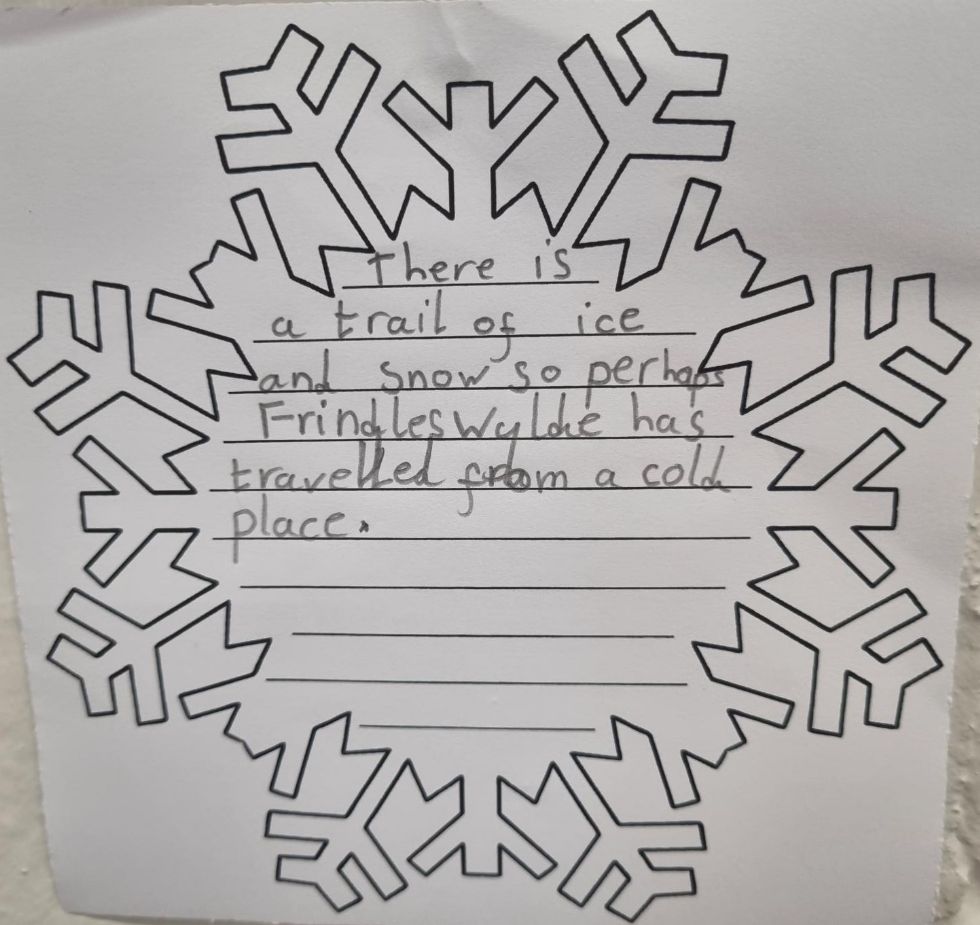 There is
a trail of ice
and snow so perhaps
Frindleswylde has
travelled from a cold
place.